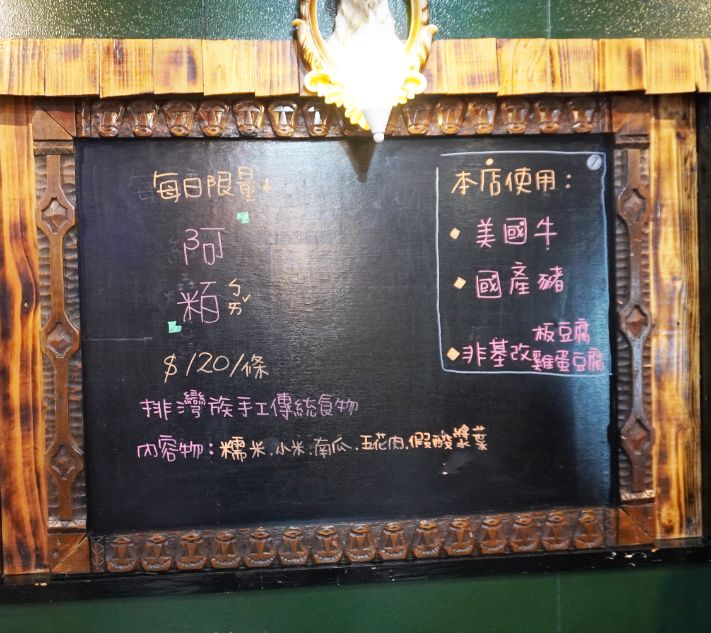 每日限量↓
阿
粨ㄅㄞˇ
$120/條
排灣族手工傳統食物
內容物：糯米.小米.南瓜.五花肉.假酸漿葉
本店使用：
美國牛
國產豬
非基改板豆腐
雞蛋豆腐